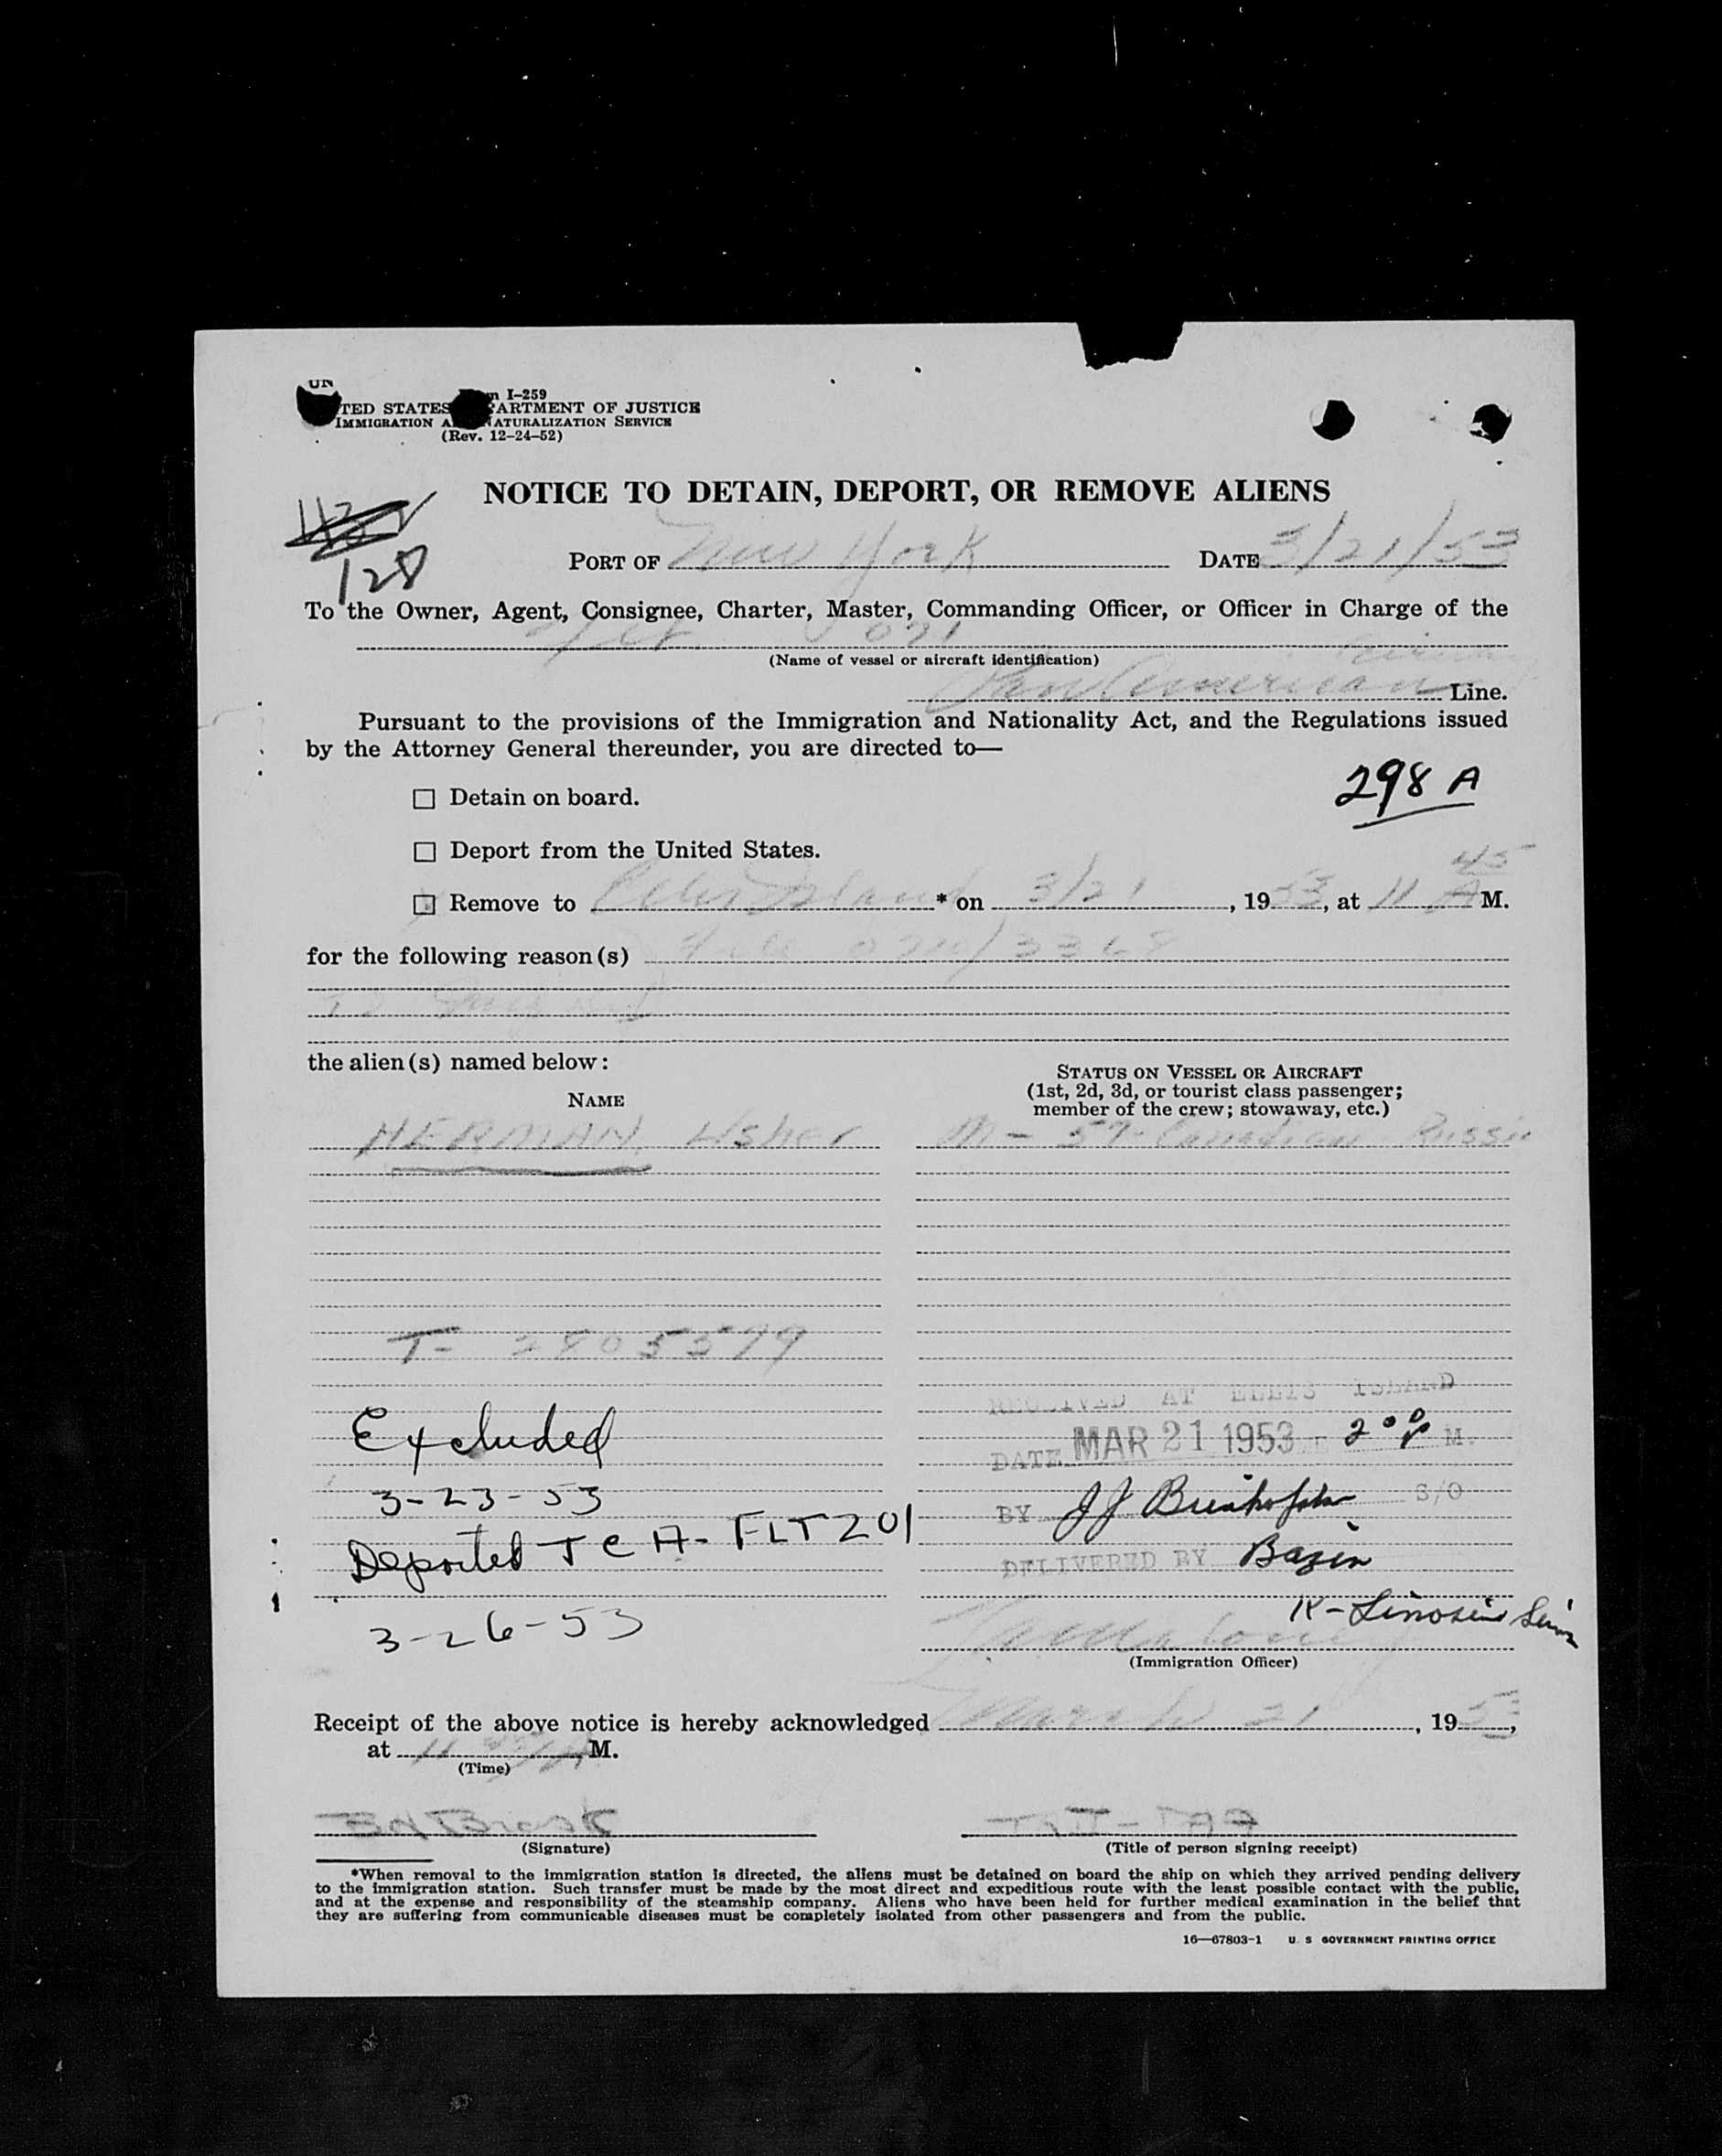 Form I-259
UNITED STATES DEPARTMENT OF JUSTICE
IMMIGRATION AND NATURALIZATION SERVICE
(Rev. 12-24-52)
NOTICE TO DETAIN, DEPORT, OR REMOVE ALIENS
128
PORT OF New York DATE 3/21/53
To the Owner, Agent, Consignee, Charter, Master, Commanding Officer, or Officer in Charge of the
071
(Name of vessel or aircraft identification)
Pan American Line.
Pursuant to the provisions of the Immigration and Nationality Act, and the Regulations issued
by the Attorney General thereunder, you are directed to—
298 A
☐ Detain on board.
☐ Deport from the United States.
☐ Remove to Ellis Island * on 3/21, 1953, at 11 45 A M.
for the following reason(s) File
the alien(s) named below:
STATUS ON VESSEL OR AIRCRAFT
(1st, 2d, 3d, or tourist class passenger;
member of the crew; stowaway, etc.)
NAME
HERMAN Usher M- 57- Canadian Russia
T- 2805599
RECEIVED AT ELLIS ISLAND
DATE MAR 21 1953 2 00 P M.
Excluded
3-23-53
BY J J S/O
Deported T C A- FLT 201
DELIVERED BY Bazin
3-26-53
(Immigration Officer)
Receipt of the above notice is hereby acknowledged March 21, 1953,
at 11 A M.
(Time)
(Signature) (Title of person signing receipt)
*When removal to the immigration station is directed, the aliens must be detained on board the ship on which they arrived pending delivery
to the immigration station. Such transfer must be made by the most direct and expeditious route with the least possible contact with the public,
and at the expense and responsibility of the steamship company. Aliens who have been held for further medical examination in the belief that
they are suffering from communicable diseases must be completely isolated from other passengers and from the public.
16—67803-1 U. S GOVERNMENT PRINTING OFFICE